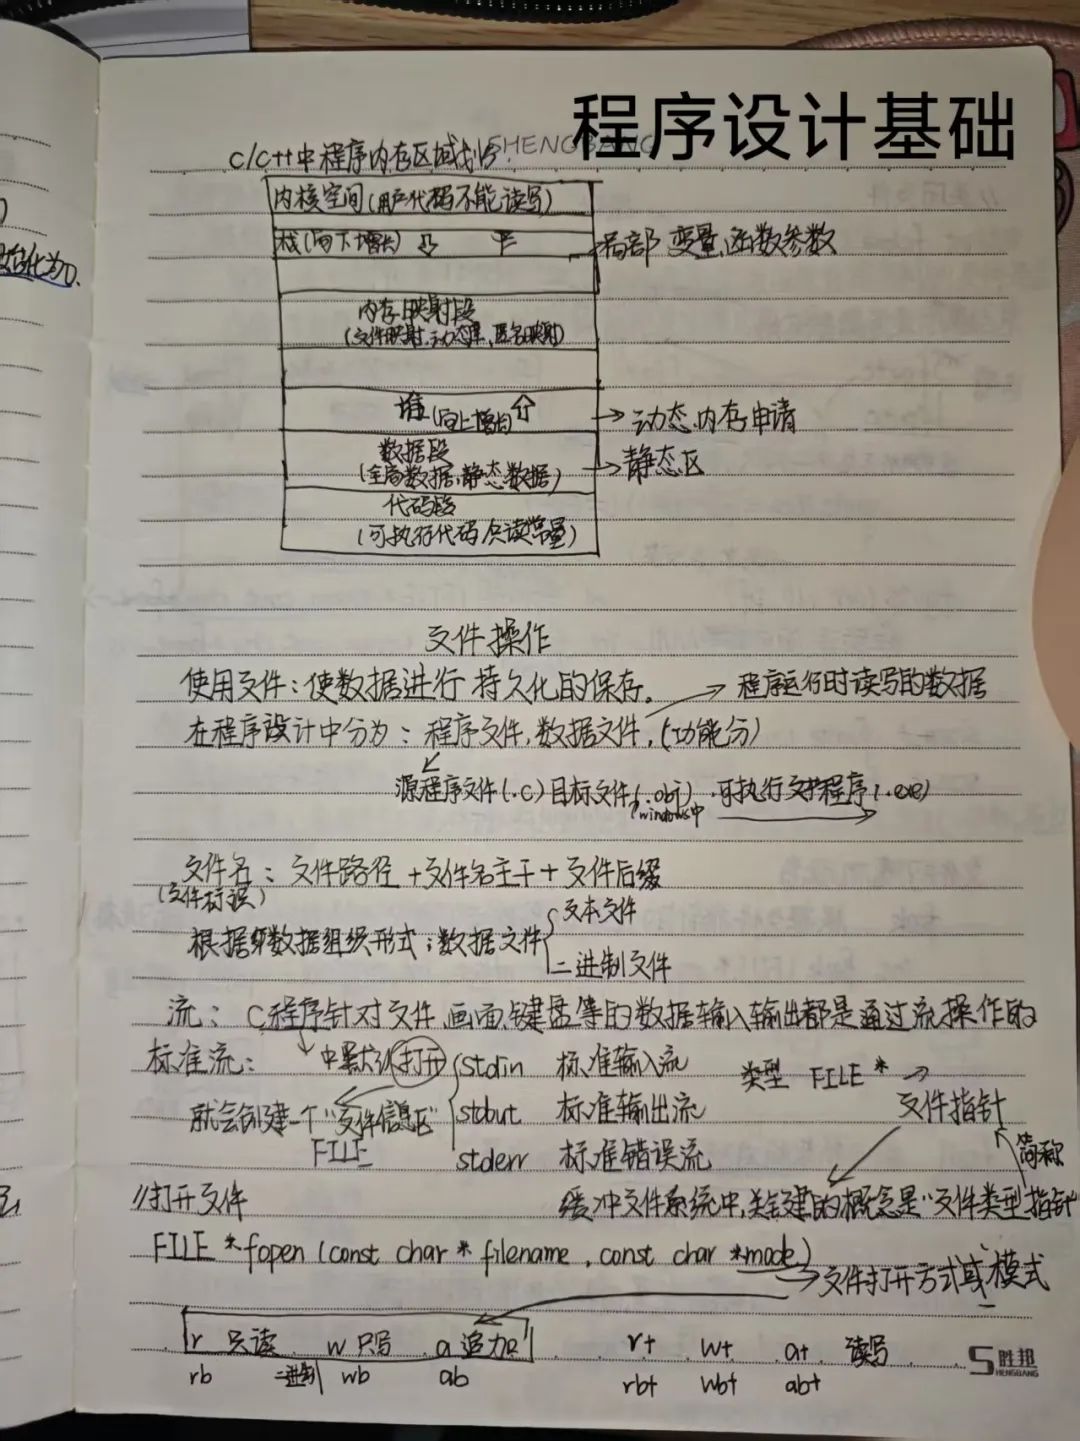 程序设计基础
SHENGBANG
C/C++中程序内存区域划分.
内核空间(用户代码不能读写)
栈(向下增长) ⇩
→局部变量、函数参数
内存映射段
(文件映射、动态库、匿名映射)
堆(向上增长)⇧ → 动态内存申请
数据段
(全局数据、静态数据) → 静态区
代码段
(可执行代码/只读常量)
文件操作
使用文件：使数据进行持久化的保存。
→ 程序运行时读写的数据
在程序设计中分为：程序文件,数据文件.(功能分)
源程序文件(.c)目标文件(.obj).可执行程序(.exe)
windows中
文件名：文件路径+文件名主干+文件后缀
(文件标识)
文本文件
根据数据组织形式；数据文件
二进制文件
流：C程序针对文件、画面、键盘等的数据输入输出都是通过流操作的
标准流：中默认打开 stdin 标准输入流 类型 FILE * →
就会创建一个"文件信息区" stbut 标准输出流 文件指针
FILE
stderr 标准错误流 简称
//打开文件 缓冲文件系统中,关键的概念是"文件类型指针"
FILE *fopen(const char * filename, const char *mode)
→文件打开方式或模式
r 只读 w 只写 a 追加 r+ w+ a+ 读写
rb 二进制 wb ab rb+ wb+ ab+
S胜邦
SHENGBANG
始化为0.